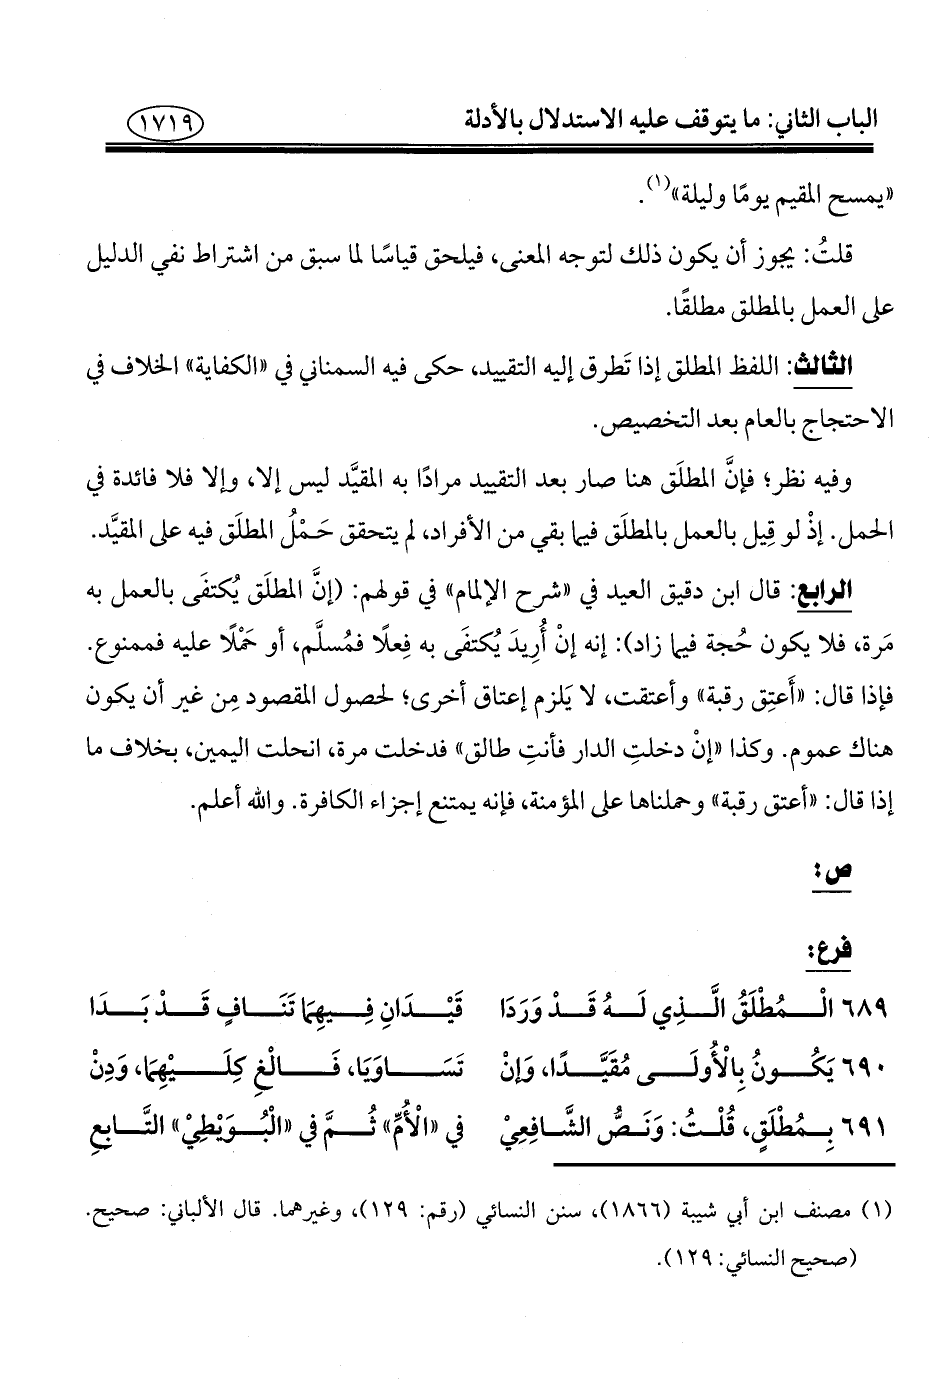 الباب الثاني: ما يتوقف عليه الاستدلال بالأدلة ١٧١٩
«يمسح المقيم يومًا وليلة»(١).
قلتُ: يجوز أن يكون ذلك لتوجه المعنى، فيلحق قياسًا لما سبق من اشتراط نفي الدليل
على العمل بالمطلق مطلقًا.
الثالث: اللفظ المطلق إذا تَطرق إليه التقييد، حكى فيه السمناني في «الكفاية» الخلاف في
الاحتجاج بالعام بعد التخصيص.
وفيه نظر؛ فإنَّ المطلَق هنا صار بعد التقييد مرادًا به المقيَّد ليس إلا، وإلا فلا فائدة في
الحمل. إذْ لو قِيل بالعمل بالمطلَق فيما بقي من الأفراد، لم يتحقق حَمْلُ المطلَق فيه على المقيَّد.
الرابع: قال ابن دقيق العيد في «شرح الإلمام» في قولهم: (إنَّ المطلَق يُكتفَى بالعمل به
مَرة، فلا يكون حُجة فيما زاد): إنه إنْ أُرِيدَ يُكتفَى به فِعلًا فمُسلَّم، أو حَمْلًا عليه فممنوع.
فإذا قال: «أَعتِق رقبة» وأعتقت، لا يَلزم إعتاق أخرى؛ لحصول المقصود مِن غير أن يكون
هناك عموم. وكذا «إنْ دخلتِ الدار فأنتِ طالق» فدخلت مرة، انحلت اليمين، بخلاف ما
إذا قال: «أعتق رقبة» وحملناها على المؤمنة، فإنه يمتنع إجزاء الكافرة. والله أعلم.
ص:
فرع:
٦٨٩ الْـمُطْلَقُ الَّذِي لَهُ قَدْ وَرَدَا قَيْدَانِ فِيهِمَا تَنَافٍ قَدْ بَدَا
٦٩٠ يَكُونُ بِالْأَولَى مُقَيَّدًا، وَإِنْ تَسَاوَيَا، فَالْغِ كِلَيْهِمَا، وَدِنْ
٦٩١ بِمُطْلَقٍ، قُلْتُ: وَنَصُّ الشَّافِعِيْ فِي «الْأُمِّ» ثُمَّ فِي «الْبُوَيْطِيْ» التَّابِعِ
(١) مصنف ابن أبي شيبة (١٨٦٦)، سنن النسائي (رقم: ١٢٩)، وغيرهما. قال الألباني: صحيح.
(صحيح النسائي: ١٢٩).